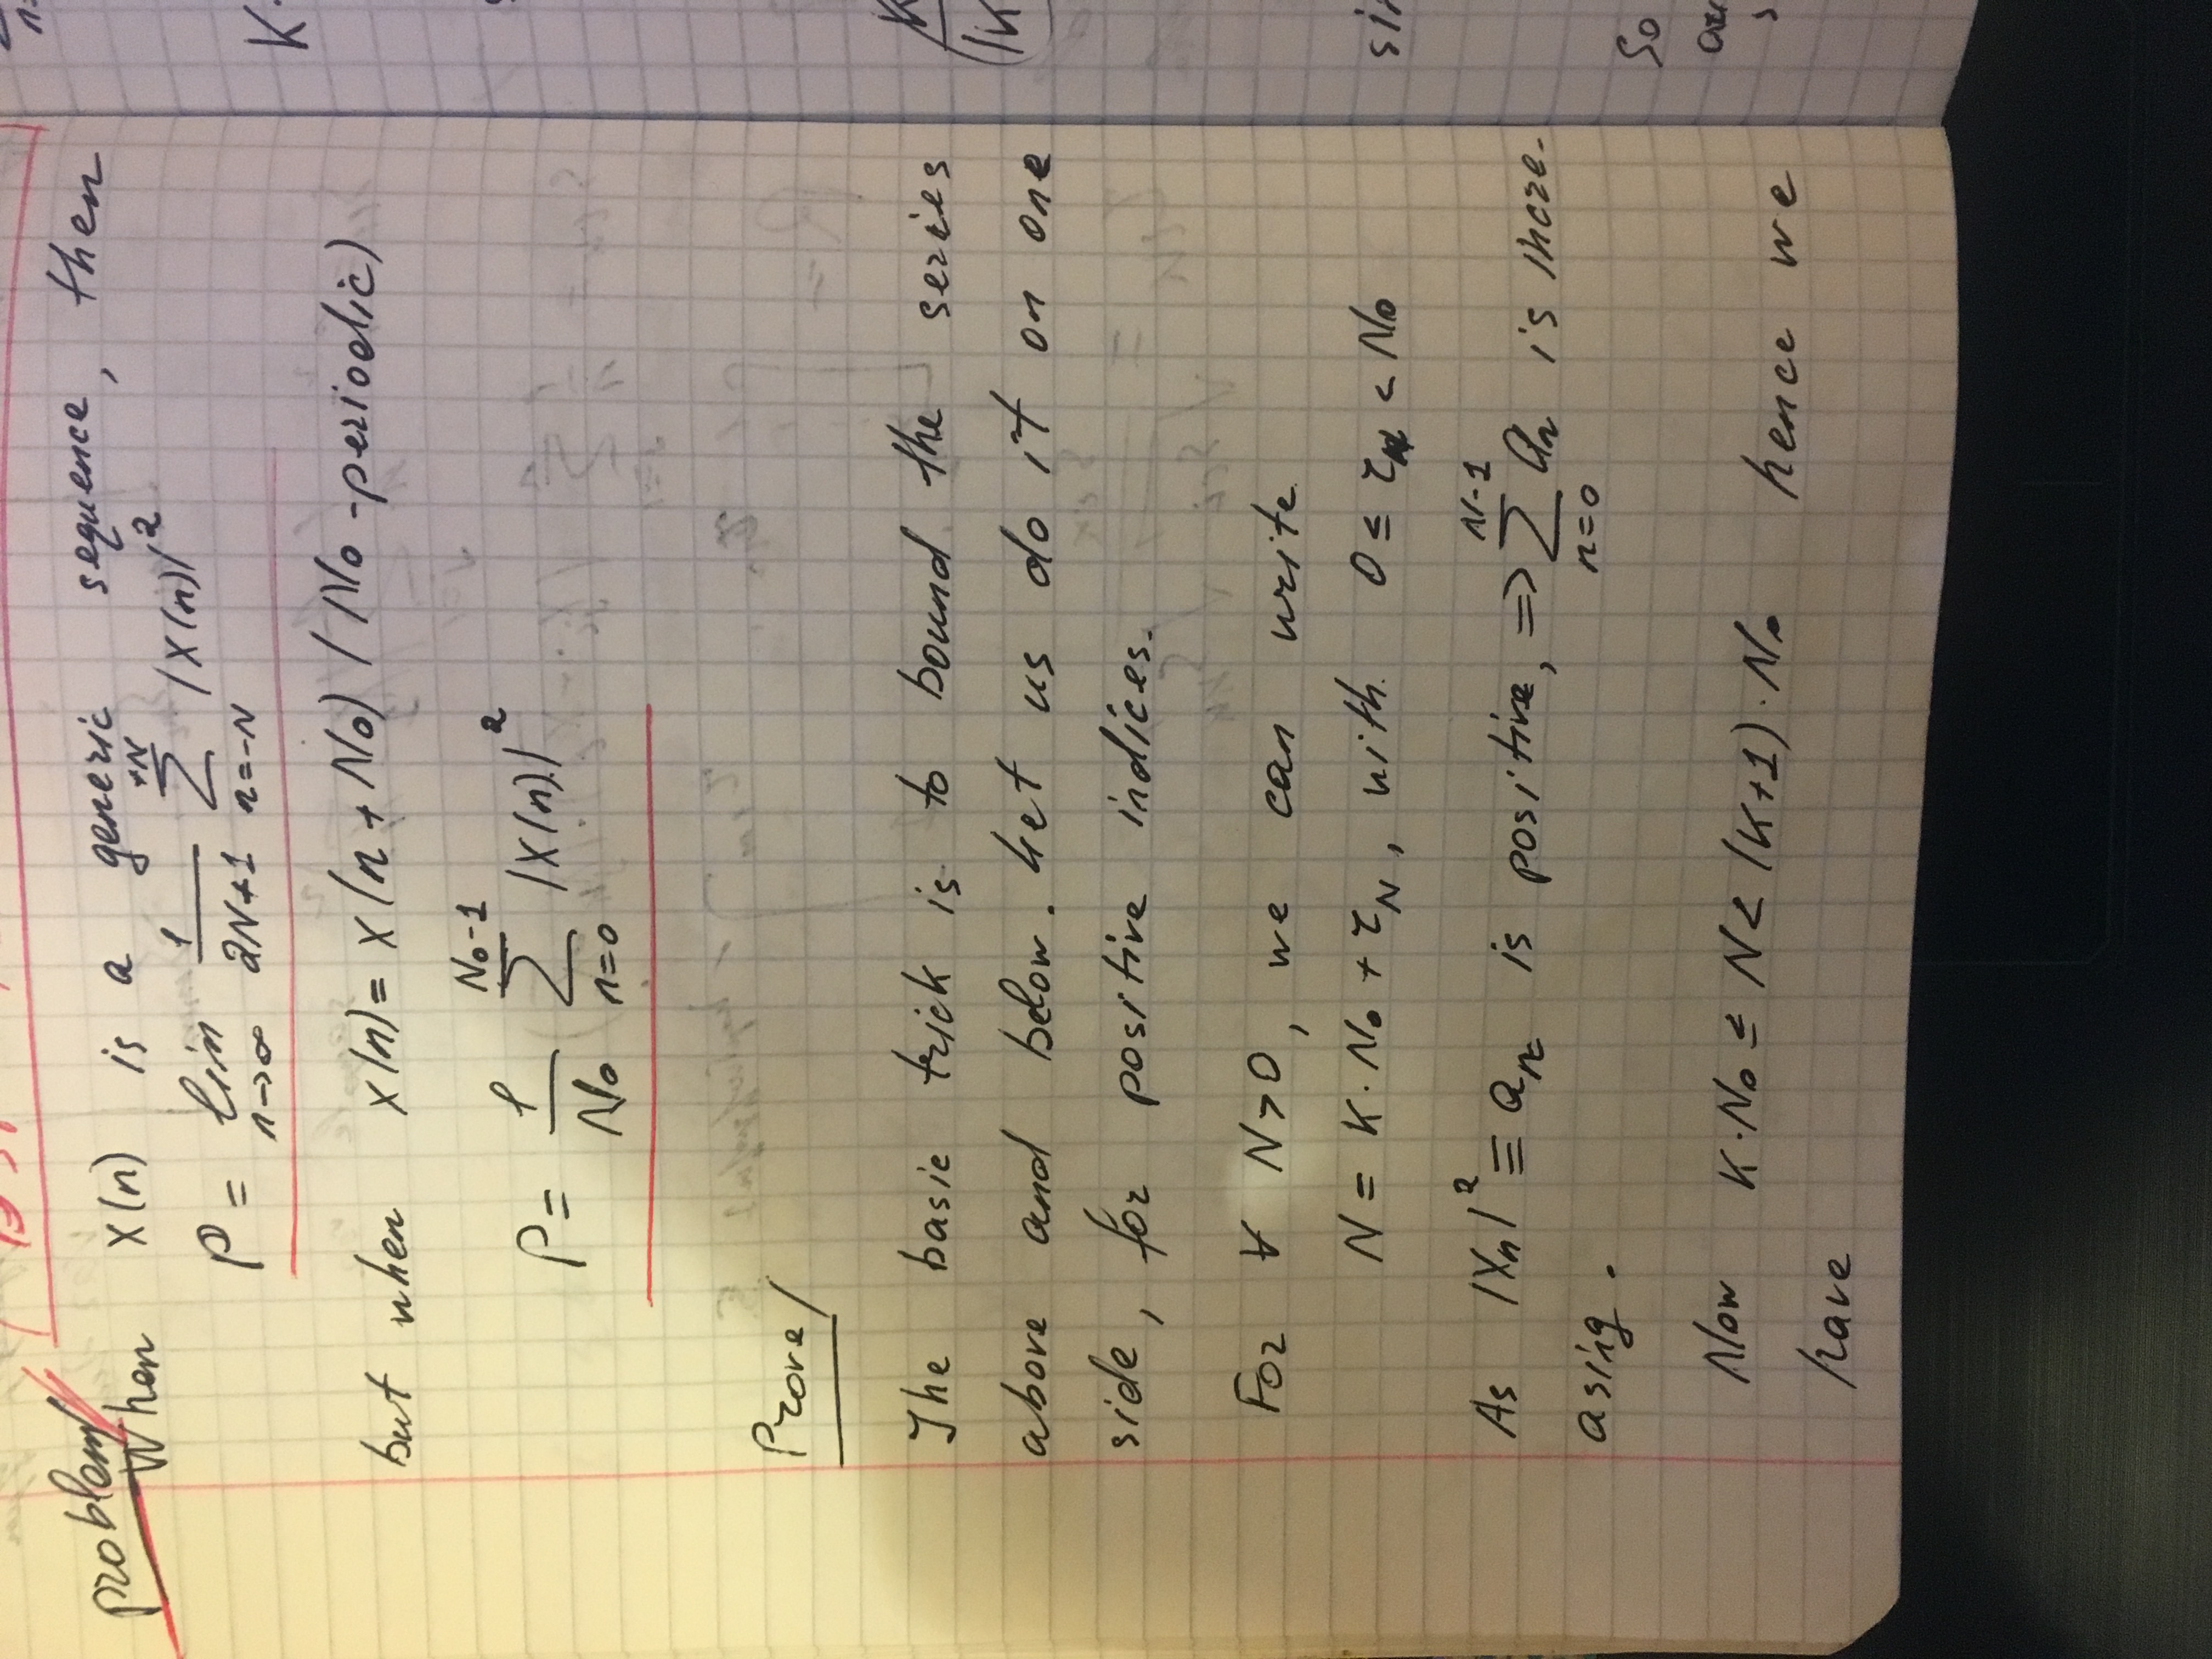 problem
When x(n) is a generic sequence, then
P = lim n→∞ 1/(2N+1) +N Σ n=-N |x(n)|²
but when x(n) = x(n + N₀) ( N₀ -periodic)
P = 1/N₀ N₀-1 Σ n=0 |x(n)|²
Prove/
The basic trick is to bound the series
above and below. Let us do it on one
side, for positive indices.
For ∀ N>0, we can write
N = K · N₀ + r_N, with 0 ≤ r_N < N₀
As |Xn|² ≡ aₙ is positive, => N-1 Σ n=0 aₙ is incre-
asing.
Now K·N₀ ≤ N < (K+1)·N₀ hence we
have
K
K
sin
So